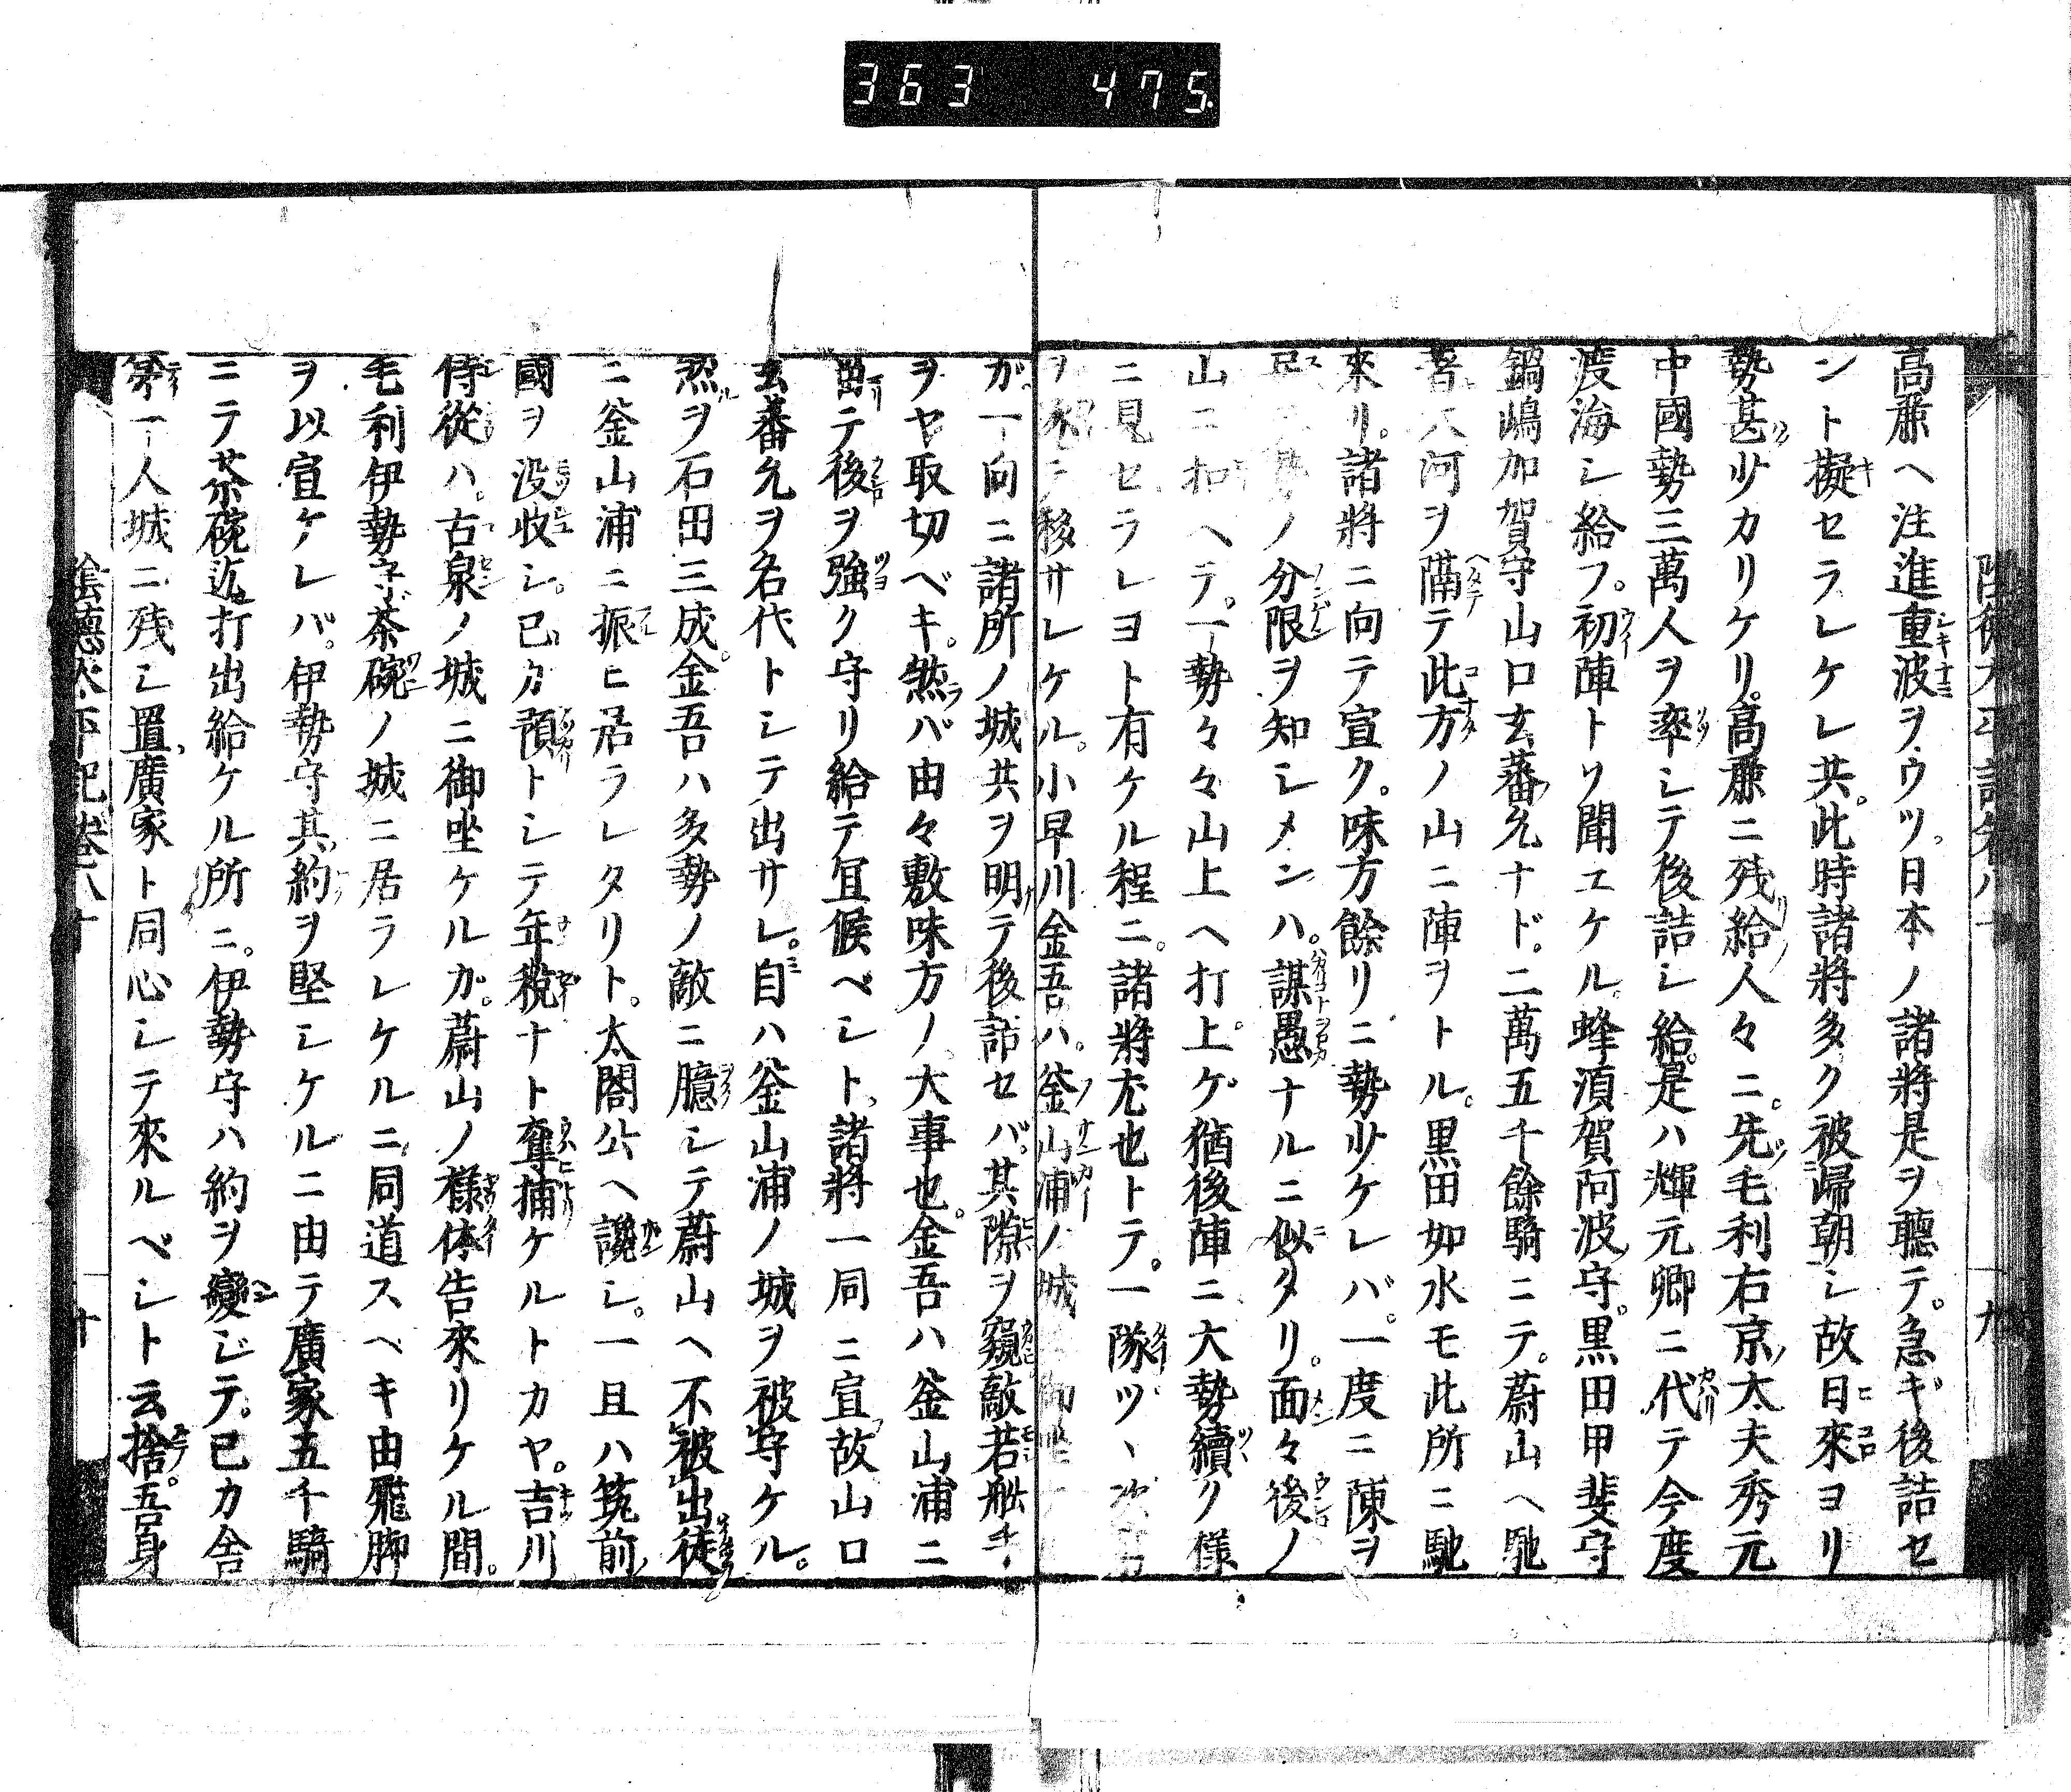 363 475
高麗ヘ注進重波ヲウツ。日本ノ諸將是ヲ聽テ。急ギ後詰セ
ント擬セラレケレ共。此時諸將多ク被歸朝シ故日來ヨリ
勢甚少カリケリ。高麗ニ残給人々ニ。先毛利右京太夫秀元
中國勢三萬人ヲ率シテ後詰シ給。是ハ輝元卿ニ代テ今度
渡海シ給フ。初陣トソ聞エケル。蜂須賀阿波守。黒田甲斐守
鍋嶋加賀守山口玄蕃允ナド。二萬五千餘騎ニテ。蔚山ヘ馳
著八河ヲ隔テ此方ノ山ニ陣ヲトル。黒田如水モ此所ニ馳
來リ。諸將ニ向テ宣ク。味方餘リニ勢少ケレバ。一度ニ陳ヲ
ノ分限ヲ知シメンハ。謀愚ナルニ似タリ。面々後ノ
山ニ扣ヘテ。一勢々々山上ヘ打上ゲ猶後陣ニ大勢續ク様
ニ見セラレヨト有ケル程ニ。諸將尤也トテ。一隊ツヽ次
移サレケル。小早川金吾ハ。釜山浦ノ城
ガ一向ニ諸所ノ城共ヲ明テ後詰セバ。其隙ヲ窺敵若舩チ
ヲヤ取切ベキ。然バ由々敷味方ノ大事也。金吾ハ釜山浦ニ
留テ後ヲ強ク守リ給テ宜候ベシト、諸將一同ニ宣故山口
玄蕃允ヲ名代トシテ出サレ。自ハ釜山浦ノ城ヲ被守ケル。
然ヲ石田三成。金吾ハ多勢ノ敵ニ臆シテ蔚山ヘ不被出徒
ニ釜山浦ニ振ヒ居ラレタリト。太閤公ヘ讒シ。一旦ハ筑前
國ヲ没收シ。已カ預トシテ年税ナト奪捕ケルトカヤ。吉川
侍從ハ。古泉ノ城ニ御坐ケルガ。蔚山ノ様体告來リケル間。
毛利伊勢守茶碗ノ城ニ居ラレケルニ、同道スヘキ由飛脚
ヲ以宣ケレバ。伊勢守其約ヲ堅シケルニ由テ廣家五千騎
ニテ茶碗迄打出給ケル所ニ。伊勢守ハ約ヲ變ジテ。已カ舎
弟一人城ニ残シ置、廣家ト同心シテ來ルベシト云捨。吾身
陰徳太平記巻八十